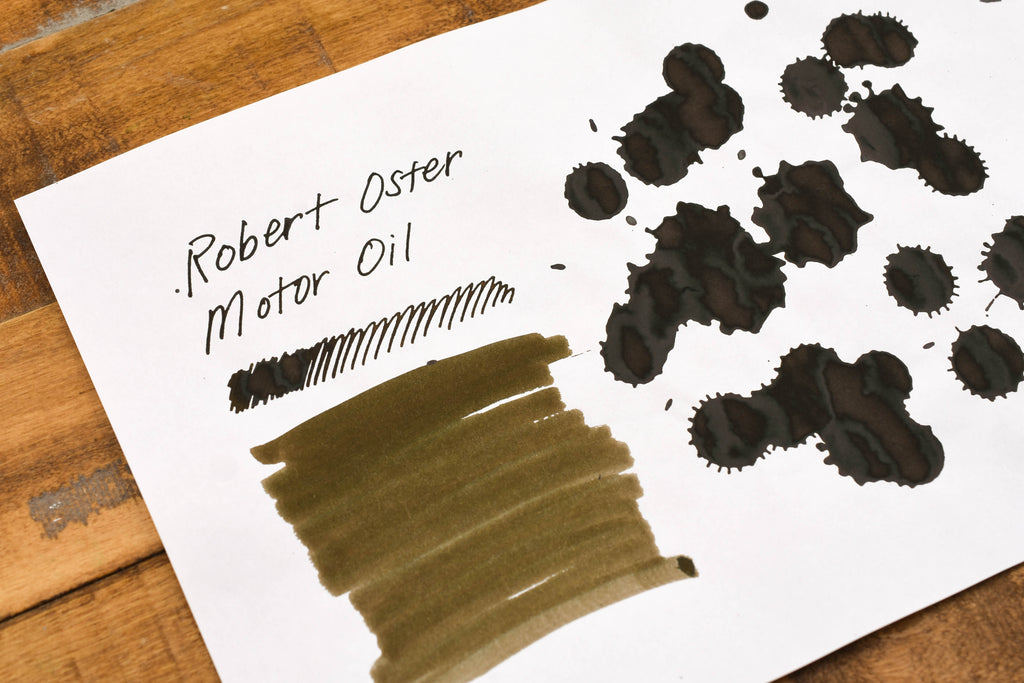 Robert Oster
Motor Oil